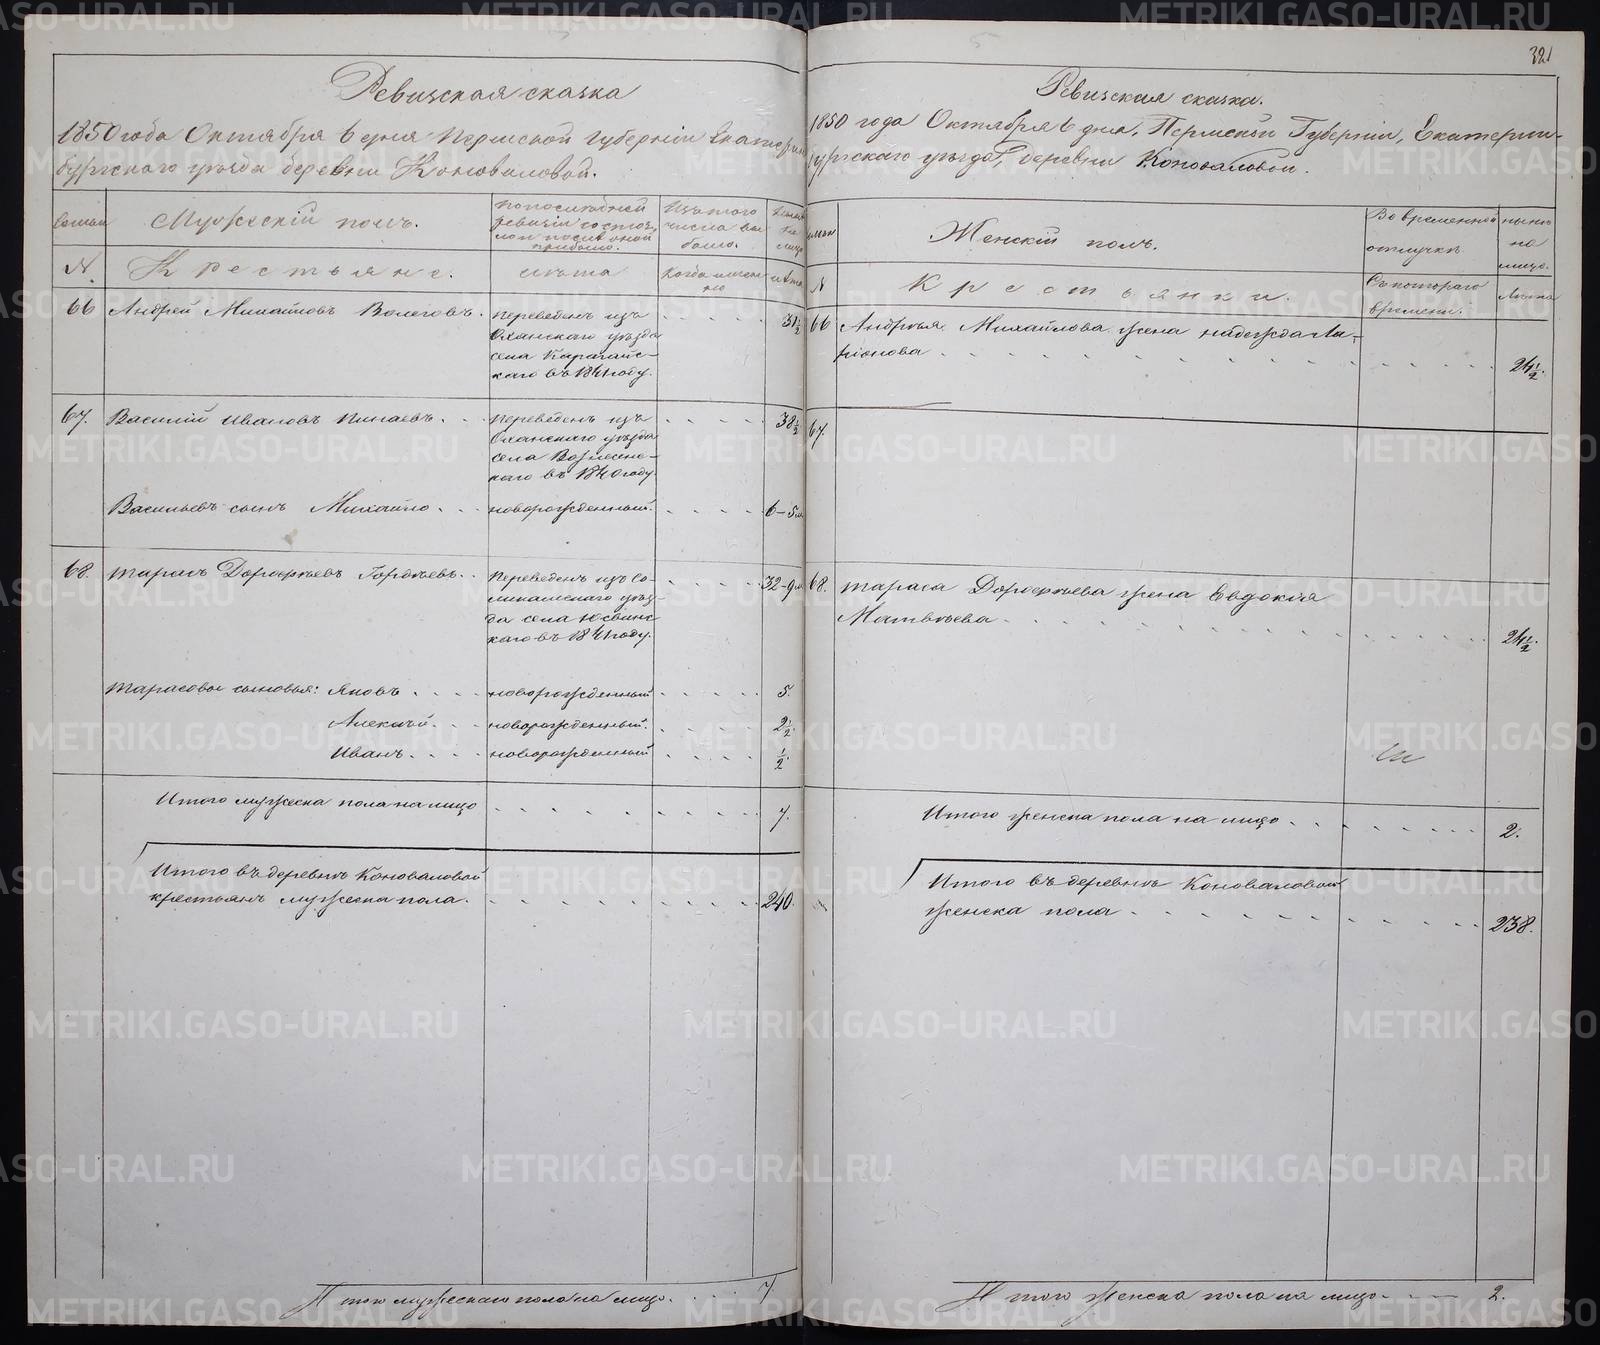 321
Ревизская сказка
1850 года Октября 6 дня Пермской губернiи Екатерин-
бургского уѣзда деревни Коноваловой.
Семьи
Мужескiй полъ.
По последней
ревизiи состоя-
ло и после оной
прибыло.
Изъ того
числа вы
было.
Ныне
на
лицо
N.
Крестьяне.
лѣта
Когда имен
но
лѣта
66 Андрей Михайловъ Волеговъ. переведенъ изъ 31½
Оханскаго уѣзда
села Карагайс-
каго въ 1841 году.
67. Василiй Ивановъ Пинаевъ. переведенъ изъ 38½
Оханскаго уѣзда
села Вознесенс-
каго въ 1840 году.
Васильевъ сынъ Михайло новорожденный. 6-5м
68. Тарасъ Дорофеевъ Гордѣевъ. переведенъ изъ Со- 32-9м
ликамскаго уѣз-
да села Юсвинс
каго въ 1841 году.
Тарасовы сыновья: Яковъ новорожденный 5.
Алексѣй новорожденный. 2½
Иванъ новорожденный ½.
Итого мужеска пола на лицо 7.
Итого въ деревнѣ Коноваловой
крестьянъ мужеска пола. 240.
Итого мужескаго пола на лицо. 7
Ревизская сказка.
1850 года Октября 6 дня, Пермской Губернiи, Екатерин-
бургскаго уѣзда, деревни Коноваловой.
Женскiй полъ.
Во временной
отлучкѣ.
нынѣ
на
лицо.
N
Крестьянки.
Съ котораго
времени.
Лѣта
66 Андрея Михайлова жена Надежда Ла-
рiонова 24½.
67.
68. Тараса Дорофеева жена Евдокiя
Матвѣева 24½.
Итого женска пола на лицо 2.
Итого въ деревнѣ Коноваловой
женска пола 238.
Итого женска пола на лицо. 2.
METRIKI.GASO-URAL.RU